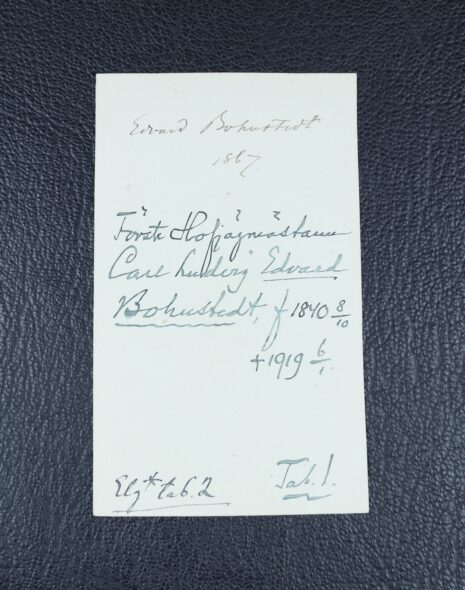 Edvard Bohnstedt
1867.
Förste Hofjägmästaren
Carl Ludvig Edvard
Bohnstedt, f 1840 8/10
+ 1919 6/1.
Elgt tab. 2
Tab. 1.